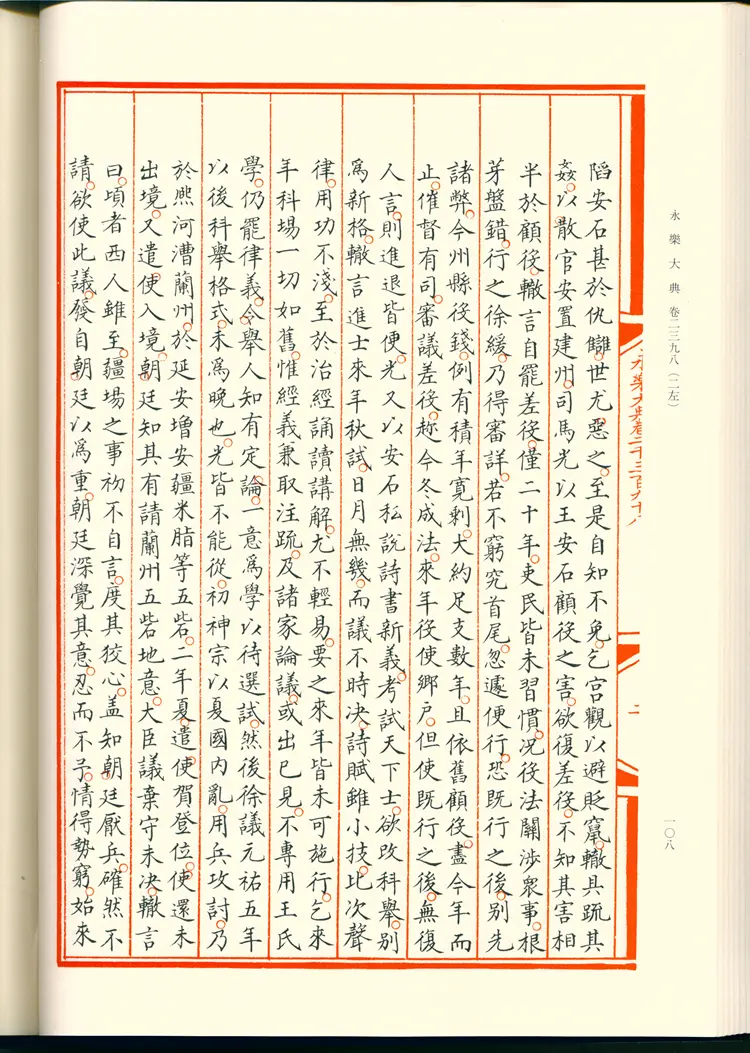 永樂大典 卷二三九八（二左）
一〇八
永樂大典卷二千三百九十八
二
陷安石甚於仇讎世尤惡之至是自知不免乞宫觀以避貶竄轍具疏其
姦以散官安置建州司馬光以王安石顧役之害欲復差役不知其害相
半於顧役轍言自罷差役僅二十年吏民皆未習慣况役法關涉衆事根
芽盤錯行之徐緩乃得審詳若不窮究首尾忽遽便行恐既行之後别先
諸弊今州縣役錢例有積年寬剩大約足支數年且依舊顧役盡今年而
止催督有司審議差役趂今冬成法來年役使鄉戶但使既行之後無復
人言則進退皆便光又以安石私說詩書新義考試天下士欲改科舉别
爲新格轍言進士來年秋試日月無幾而議不時决詩賦雖小技比次聲
律用功不淺至於治經誦讀講解尤不輕易要之來年皆未可施行乞來
年科場一切如舊惟經義兼取注疏及諸家論議或出己見不專用王氏
學仍罷律義令舉人知有定論一意爲學以待選試然後徐議元祐五年
以後科舉格式未爲晚也光皆不能從初神宗以夏國內亂用兵攻討乃
於熈河漕蘭州於延安增安疆米脂等五砦二年夏遣使賀登位使還未
出境又遣使入境朝廷知其有請蘭州五砦地意大臣議棄守未决轍言
曰頃者西人雖至疆場之事初不自言度其狡心盖知朝廷厭兵確然不
請欲使此議發自朝廷以爲重朝廷深覺其意忍而不予情得勢窮始來